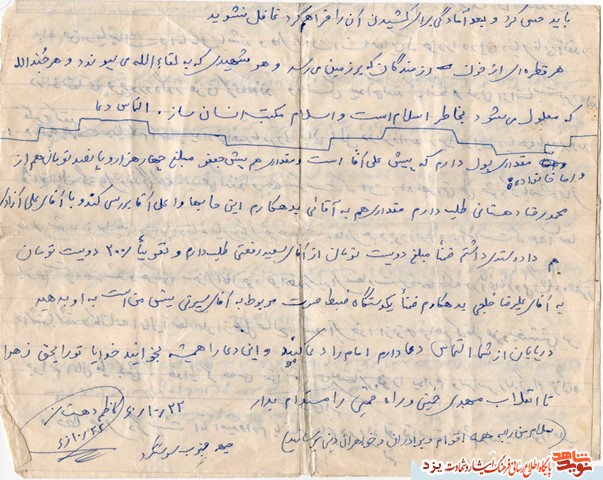 باید حس کرد و بعد آمادگی برای کشیدن آن را فراهم کرد غافل نشوید
هر قطره‌ای از خون رزمندگان که بر زمین می رسد و هر شهیدی که به لقاءالله می پیوندد و هر جندالله
که معلول می شود بخاطر اسلام است و اسلام مکتب انسان ساز. التماس دعا
و اما خانواده:
مقداری پول دارم که پیش علی آقا است و مقداری هم پیش جعفر مبلغ چهار هزار و پانصد تومان هم از
محمدرضا دهستانی طلب دارم مقداری هم به آقائی بدهکارم این حسابها را علی آقا بررسی کند و با آقای علی آزاد
هم داد و ستد داشتم ضمناً مبلغ دویست تومان از آقای سعید رفعتی طلب دارم و تقریباً ۲۰۰ دویست تومان
به آقای علیرضا حلبی بدهکارم ضمناً یک دستگاه ضبط صوت مربوط به آقای سیرتی پیش من است به او بدهید
در پایان از شما التماس دعا دارم امام را دعا کنید و این دعا را همیشه بخوانید خدایا تو را بحق زهرا
تا انقلاب مهدی خمینی و راه خمینی را مستدام بدار
سلام من را به همه اقوام و برادران و خواهران دینی برسانید
۶۰/۱۰/۲۲
جبهه جنوب سوسنگرد
کاظم دهستانی
۶۰/۱۰/۲۲
نوید شاهد
پایگاه اطلاع رسانی فرهنگ ایثار و شهادت یزد